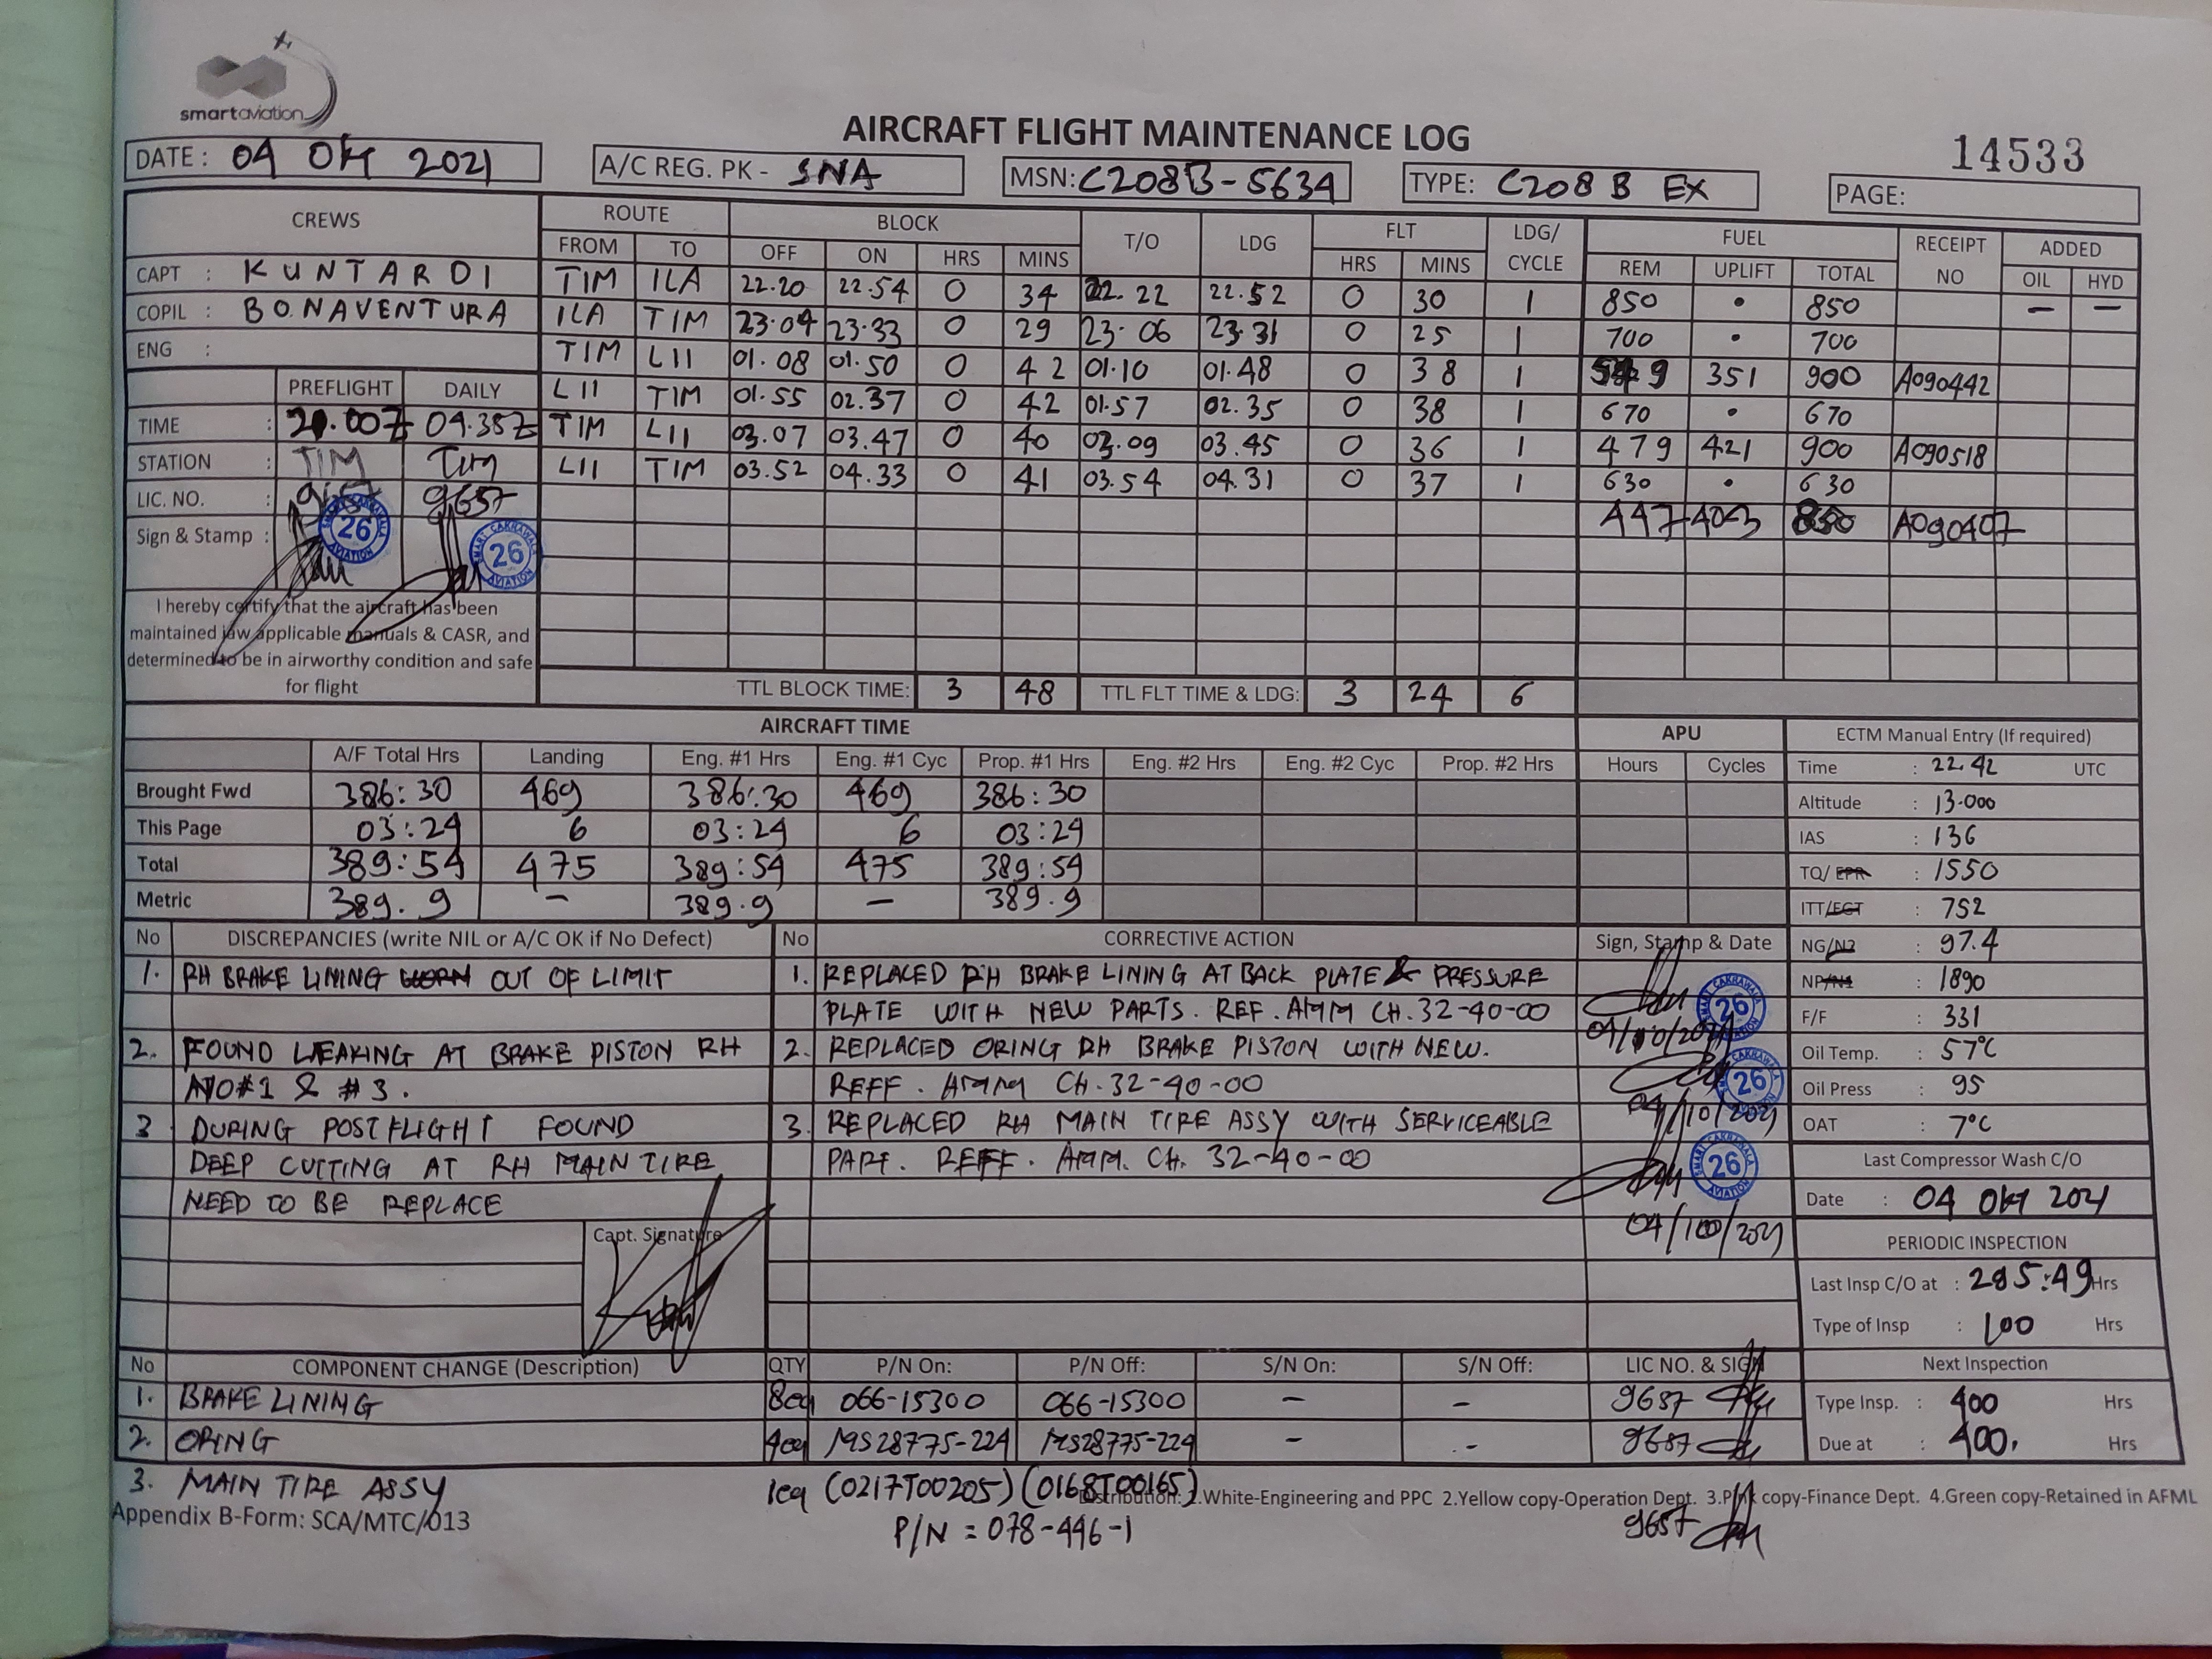 smartaviation
AIRCRAFT FLIGHT MAINTENANCE LOG
14533
DATE: 04 Okt 2021
A/C REG. PK - SNA
MSN: C208B-5634
TYPE: C208 B EX
PAGE:
CREWS ROUTE BLOCK T/O LDG FLT LDG/ CYCLE FUEL RECEIPT NO ADDED
FROM TO OFF ON HRS MINS HRS MINS REM UPLIFT TOTAL OIL HYD
CAPT : KUNTARDI
COPIL : BONAVENTURA
ENG :
TIM ILA 22.20 22.54 0 34 22.22 22.52 0 30 1 850 • 850 — —
ILA TIM 23.04 23.33 0 29 23.06 23.31 0 25 1 700 • 700
TIM LII 01.08 01.50 0 42 01.10 01.48 0 38 1 351 900 A090442
LII TIM 01.55 02.37 0 42 01.57 02.35 0 38 1 670 • 670
TIM LII 03.07 03.47 0 40 03.09 03.45 0 36 1 479 421 900 A090518
LII TIM 03.52 04.33 0 41 03.54 04.31 0 37 1 630 • 630
447 403 850 A090407
PREFLIGHT DAILY
TIME : 04.35Z
STATION : TIM TIM
LIC. NO. : 9657
Sign & Stamp :
26
26
I hereby certify that the aircraft has been
maintained iaw applicable manuals & CASR, and
determined to be in airworthy condition and safe
for flight
TTL BLOCK TIME: 3 48 TTL FLT TIME & LDG: 3 24 6
AIRCRAFT TIME
A/F Total Hrs Landing Eng. #1 Hrs Eng. #1 Cyc Prop. #1 Hrs Eng. #2 Hrs Eng. #2 Cyc Prop. #2 Hrs
Brought Fwd 386:30 469 386:30 469 386:30
This Page 03:24 6 03:24 6 03:24
Total 389:54 475 389:54 475 389:54
Metric 389.9 — 389.9 — 389.9
APU
Hours Cycles
ECTM Manual Entry (If required)
Time : 22.42 UTC
Altitude : 13.000
IAS : 136
TQ/EPR : 1550
ITT/EGT : 752
NG/N2 : 97.4
NP/N1 : 1890
F/F : 331
Oil Temp. : 57°C
Oil Press : 95
OAT : 7°C
Last Compressor Wash C/O
Date : 04 Okt 2021
PERIODIC INSPECTION
Last Insp C/O at : 285:49 Hrs
Type of Insp : 100 Hrs
Next Inspection
Type Insp. : 400 Hrs
Due at : 400, Hrs
No DISCREPANCIES (write NIL or A/C OK if No Defect)
1. RH BRAKE LINING WORN OUT OF LIMIT
2. FOUND LEAKING AT BRAKE PISTON RH
NO#1 & #3.
3 DURING POSTFLIGHT FOUND
DEEP CUTTING AT RH MAIN TIRE
NEED TO BE REPLACE
Capt. Signature
No CORRECTIVE ACTION Sign, Stamp & Date
1. REPLACED RH BRAKE LINING AT BACK PLATE & PRESSURE
PLATE WITH NEW PARTS. REF. AMM CH. 32-40-00
26
04/10/2021
2. REPLACED ORING RH BRAKE PISTON WITH NEW.
REFF. AMM CH. 32-40-00
26
04/10/2021
3. REPLACED RH MAIN TIRE ASSY WITH SERVICEABLE
PART. REFF. AMM. CH. 32-40-00
26
04/10/2021
No COMPONENT CHANGE (Description) QTY P/N On: P/N Off: S/N On: S/N Off: LIC NO. & SIGN
1. BRAKE LINING 8ea 066-15300 066-15300 — — 9687
2. ORING 4ea MS28775-224 MS28775-224 — — 9687
3. MAIN TIRE ASSY 1ea (0217T00205) (0168T00165)
P/N = 078-446-1
9657
Distribution: 1.White-Engineering and PPC 2.Yellow copy-Operation Dept. 3.Pink copy-Finance Dept. 4.Green copy-Retained in AFML
Appendix B-Form: SCA/MTC/013